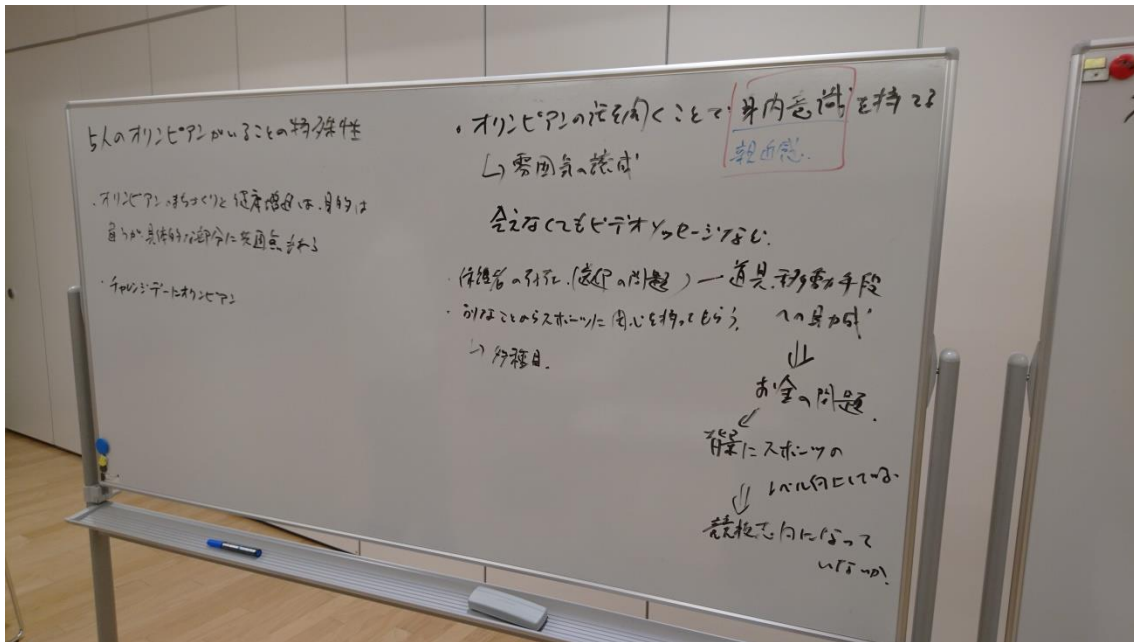 5人のオリンピアンがいることの特殊性
・オリンピアンのまちづくりと健康増進は、目的は
具体的な部分に共通点もある
・チャレンジデーにオリンピアン
・オリンピアンの話を聞くことで身内意識を持てる
親近感.
↳雰囲気の醸成
会えなくてもビデオメッセージなど.
・保護者の (送迎の問題)ー道具、移動手段
への助成
・別なことからスポーツに関心を持ってもらう.
↳多種目.
⇓
お金の問題.
↙
背景にスポーツの
レベル向上している.
⇓
競技志向になって
いないか?